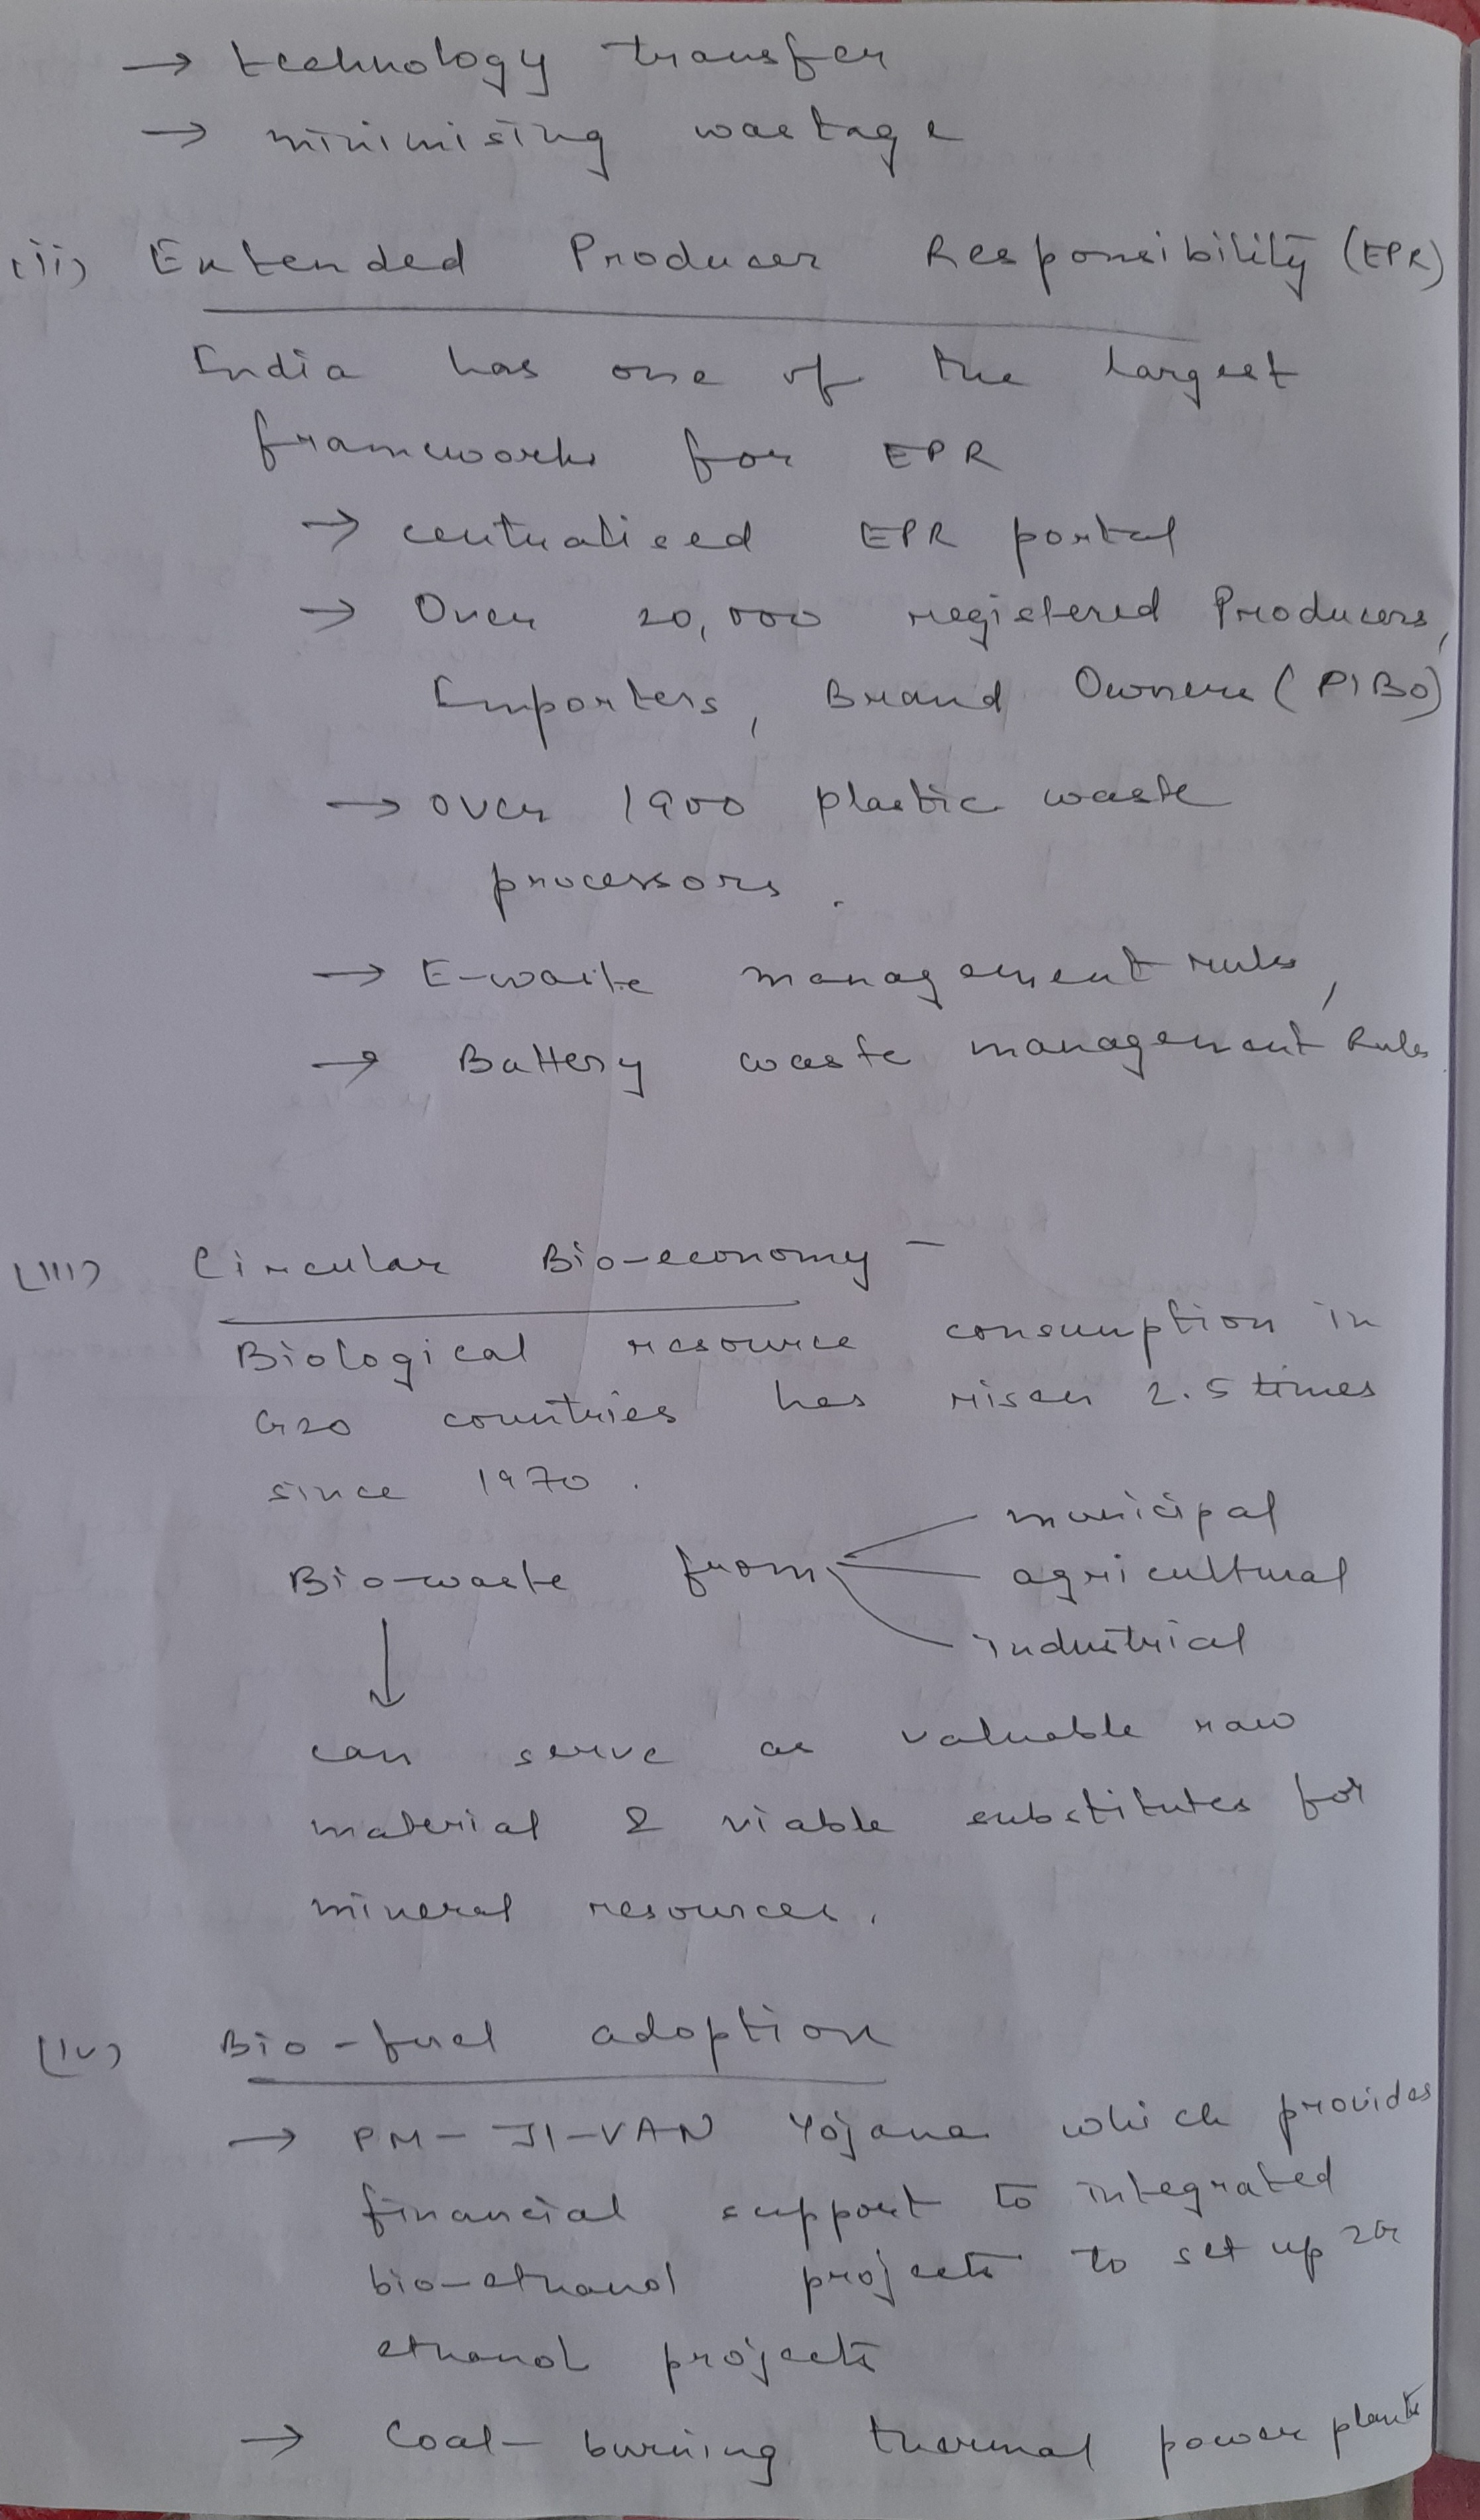 → technology transfer
→ minimising wastage
(ii) Extended Producer Responsibility (EPR)
India has one of the largest
frameworks for EPR
→ centralised EPR portal
→ Over 20,000 registered Producers,
Importers, Brand Owners (PIBO)
→ over 1900 plastic waste
processors.
→ E-waste management rules,
→ Battery waste management Rules
(iii) Circular Bio-economy –
Biological resource consumption in
G20 countries has risen 2.5 times
since 1970.
Bio-waste from municipal
agricultural
industrial
↓
can serve as valuable raw
material & viable substitutes for
mineral resources.
(iv) Bio-fuel adoption
→ PM-JI-VAN Yojana which provides
financial support to integrated
bio-ethanol projects to set up 2G
ethanol projects
→ Coal-burning thermal power plants